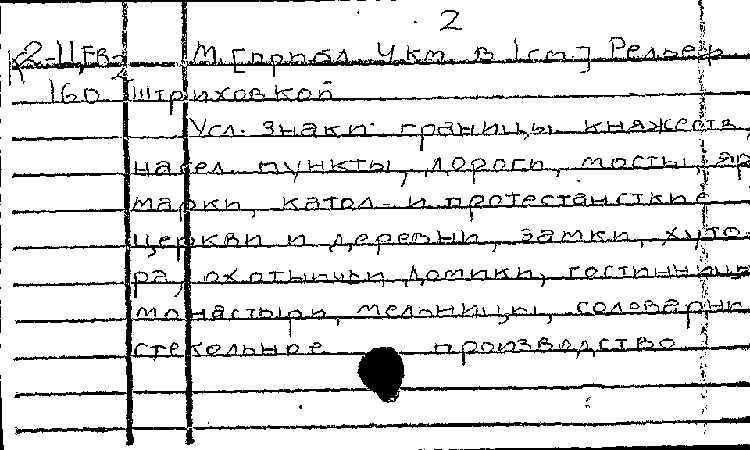 2
М. [прибл. 4 км. в 1 см] Рельеф
160 штриховкой
Усл. знаки: границы княжеств,
насел. пункты, дороги, мосты, яр
марки, катол. и протестанские
церкви и деревни, замки, хуто-
ра, охотничьи домики, гостинницы
монастыри, мельницы, соловарни
стекольное производство